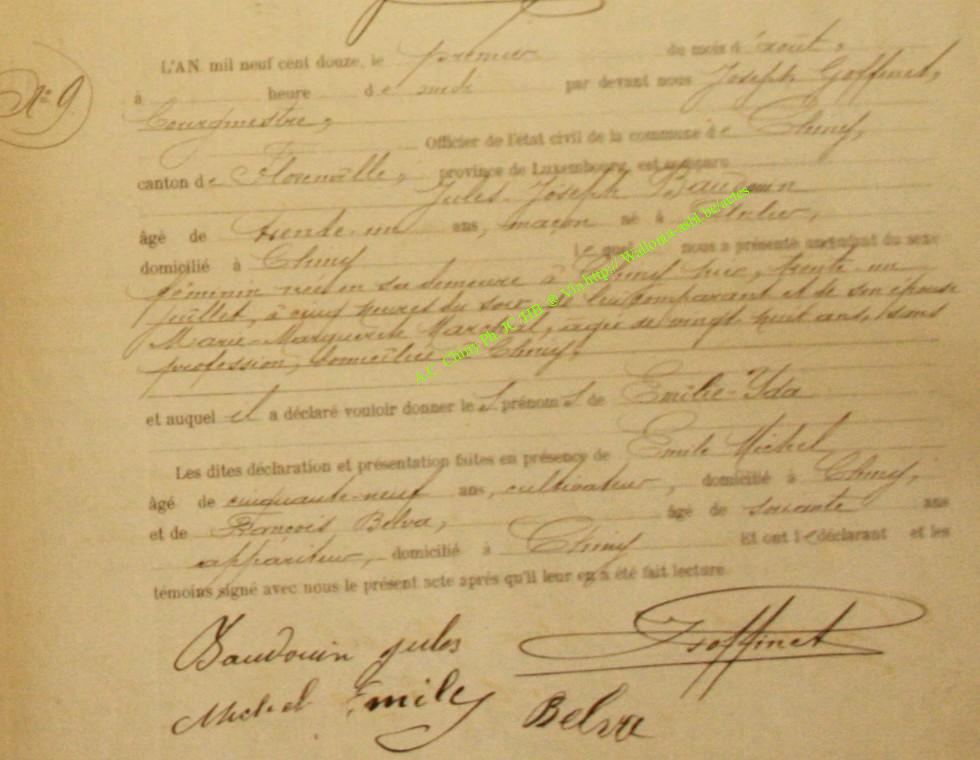 N° 9
L'AN mil neuf cent douze, le premier du mois d'août,
à heure de midi par devant nous Joseph Goffinet,
bourgmestre,
Officier de l'état civil de la commune de Chiny,
canton de Florenville, province de Luxembourg, est comparu
Jules-Joseph Baudouin
âgé de trente-un ans, maçon né à
domicilié à Chiny lequel nous a présenté un enfant du sexe
féminin née en sa demeure à Chiny hier, trente-un
juillet, à cinq heures du soir, de lui comparant et de son épouse
Marie-Marguerite, âgée de vingt-huit ans, sans
profession, domiciliée à Chiny,
et auquel il a déclaré vouloir donner les prénoms de Emilie-Yda
Les dites déclaration et présentation faites en présence de Emile Michel,
âgé de cinquante-neuf ans, cultivateur, domicilié à Chiny,
et de François Belva, âgé de soixante ans
appariteur, domicilié à Chiny Et ont le déclarant et les
témoins signé avec nous le présent acte après qu'il leur en a été fait lecture
Baudouin jules JGoffinet
Michel Emile Belva
A.C. Chiny Ph. JC HB ® Via http:// Wallonia-asbl.be/actes